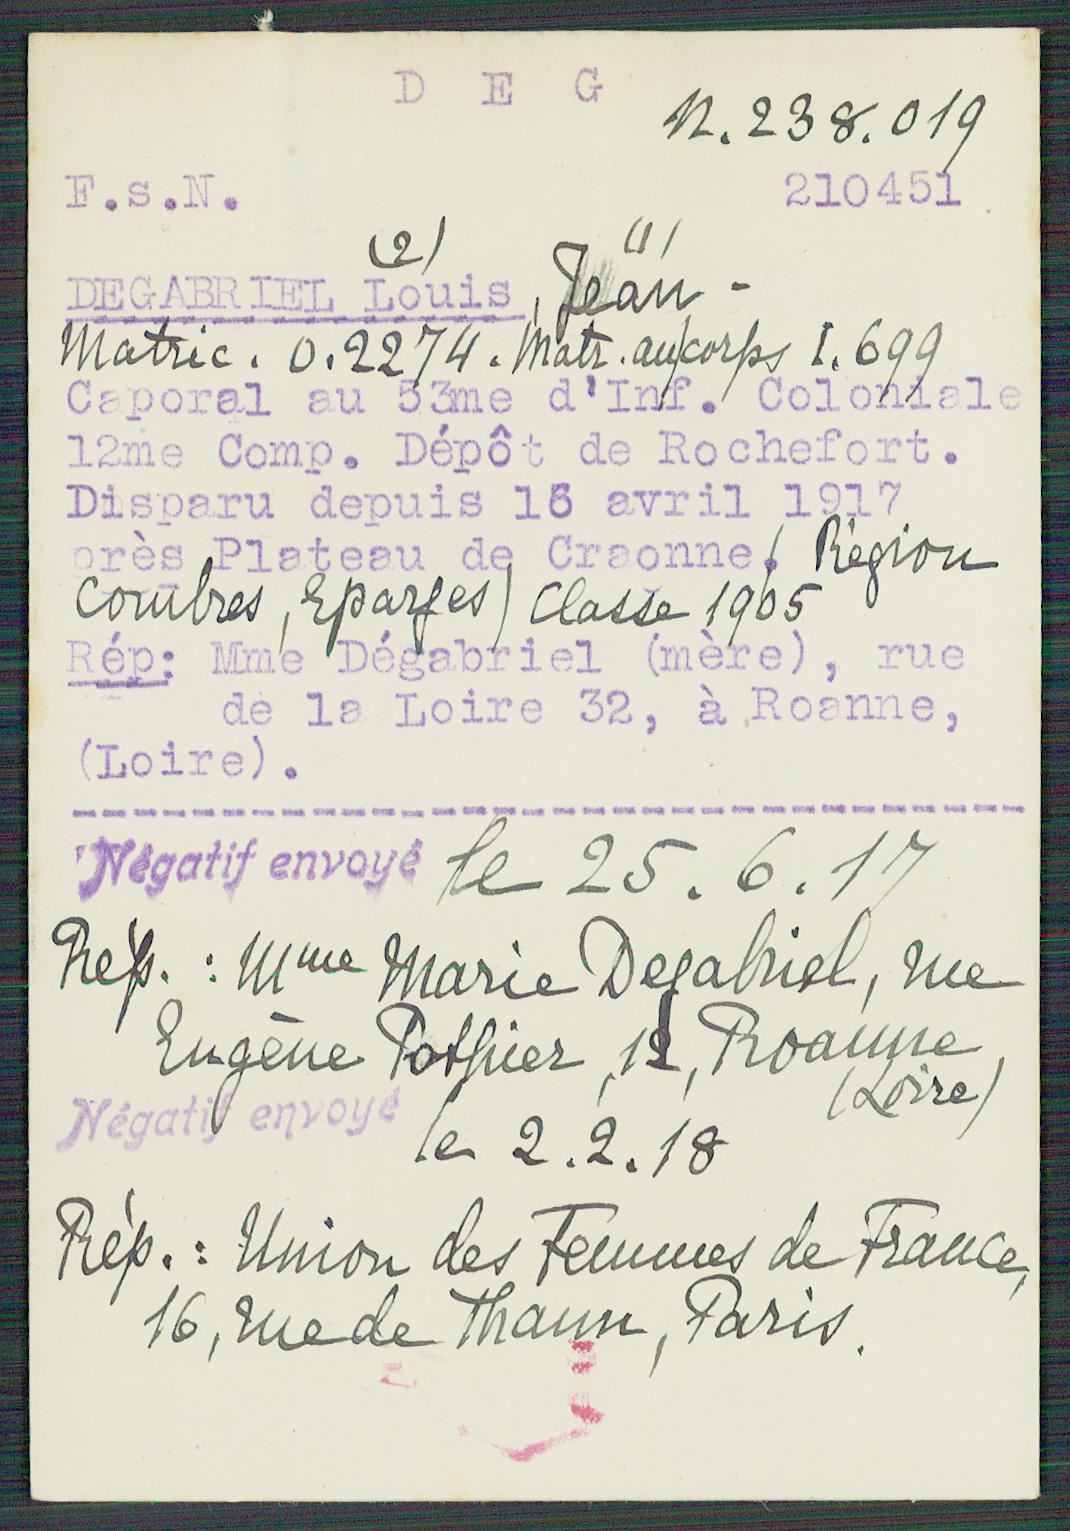 D E G
N. 238.019
F.s.N. 210451
(2) (1)
DEGABRIEL Louis, Jean -
Matric. 0.2274. Matr. au corps I.699
Caporal au 53me d'Inf. Coloniale
12me Comp. Dépôt de Rochefort.
Disparu depuis 16 avril 1917
près Plateau de Craonne. (Région
Combres, Eparges) Classe 1905
Rép: Mme Dégabriel (mère), rue
de la Loire 32, à Roanne,
(Loire).
Négatif envoyé le 25.6.17
Rép. : Mme Marie Degabriel, rue
Eugène Pothier, 12, Roanne,
(Loire)
Négatif envoyé
le 2.2.18
Rép. : Union des Femmes de France,
16, rue de Thann, Paris.